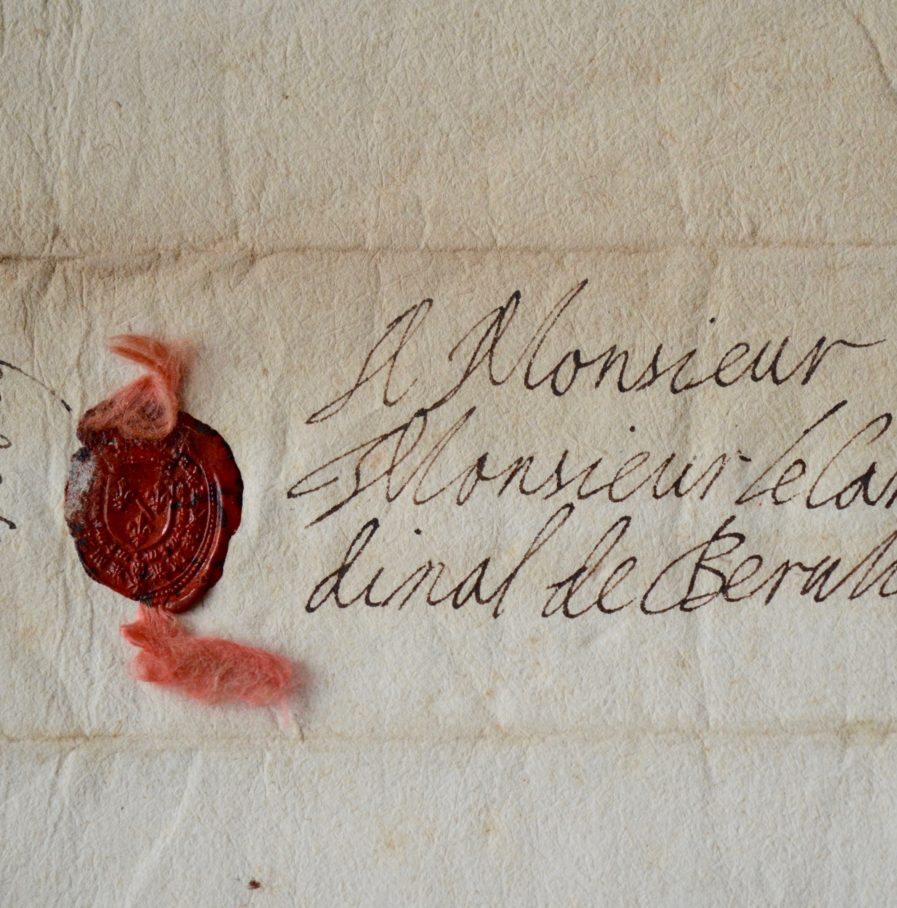 A Monsieur
Monsieur le Car
dinal de Berull